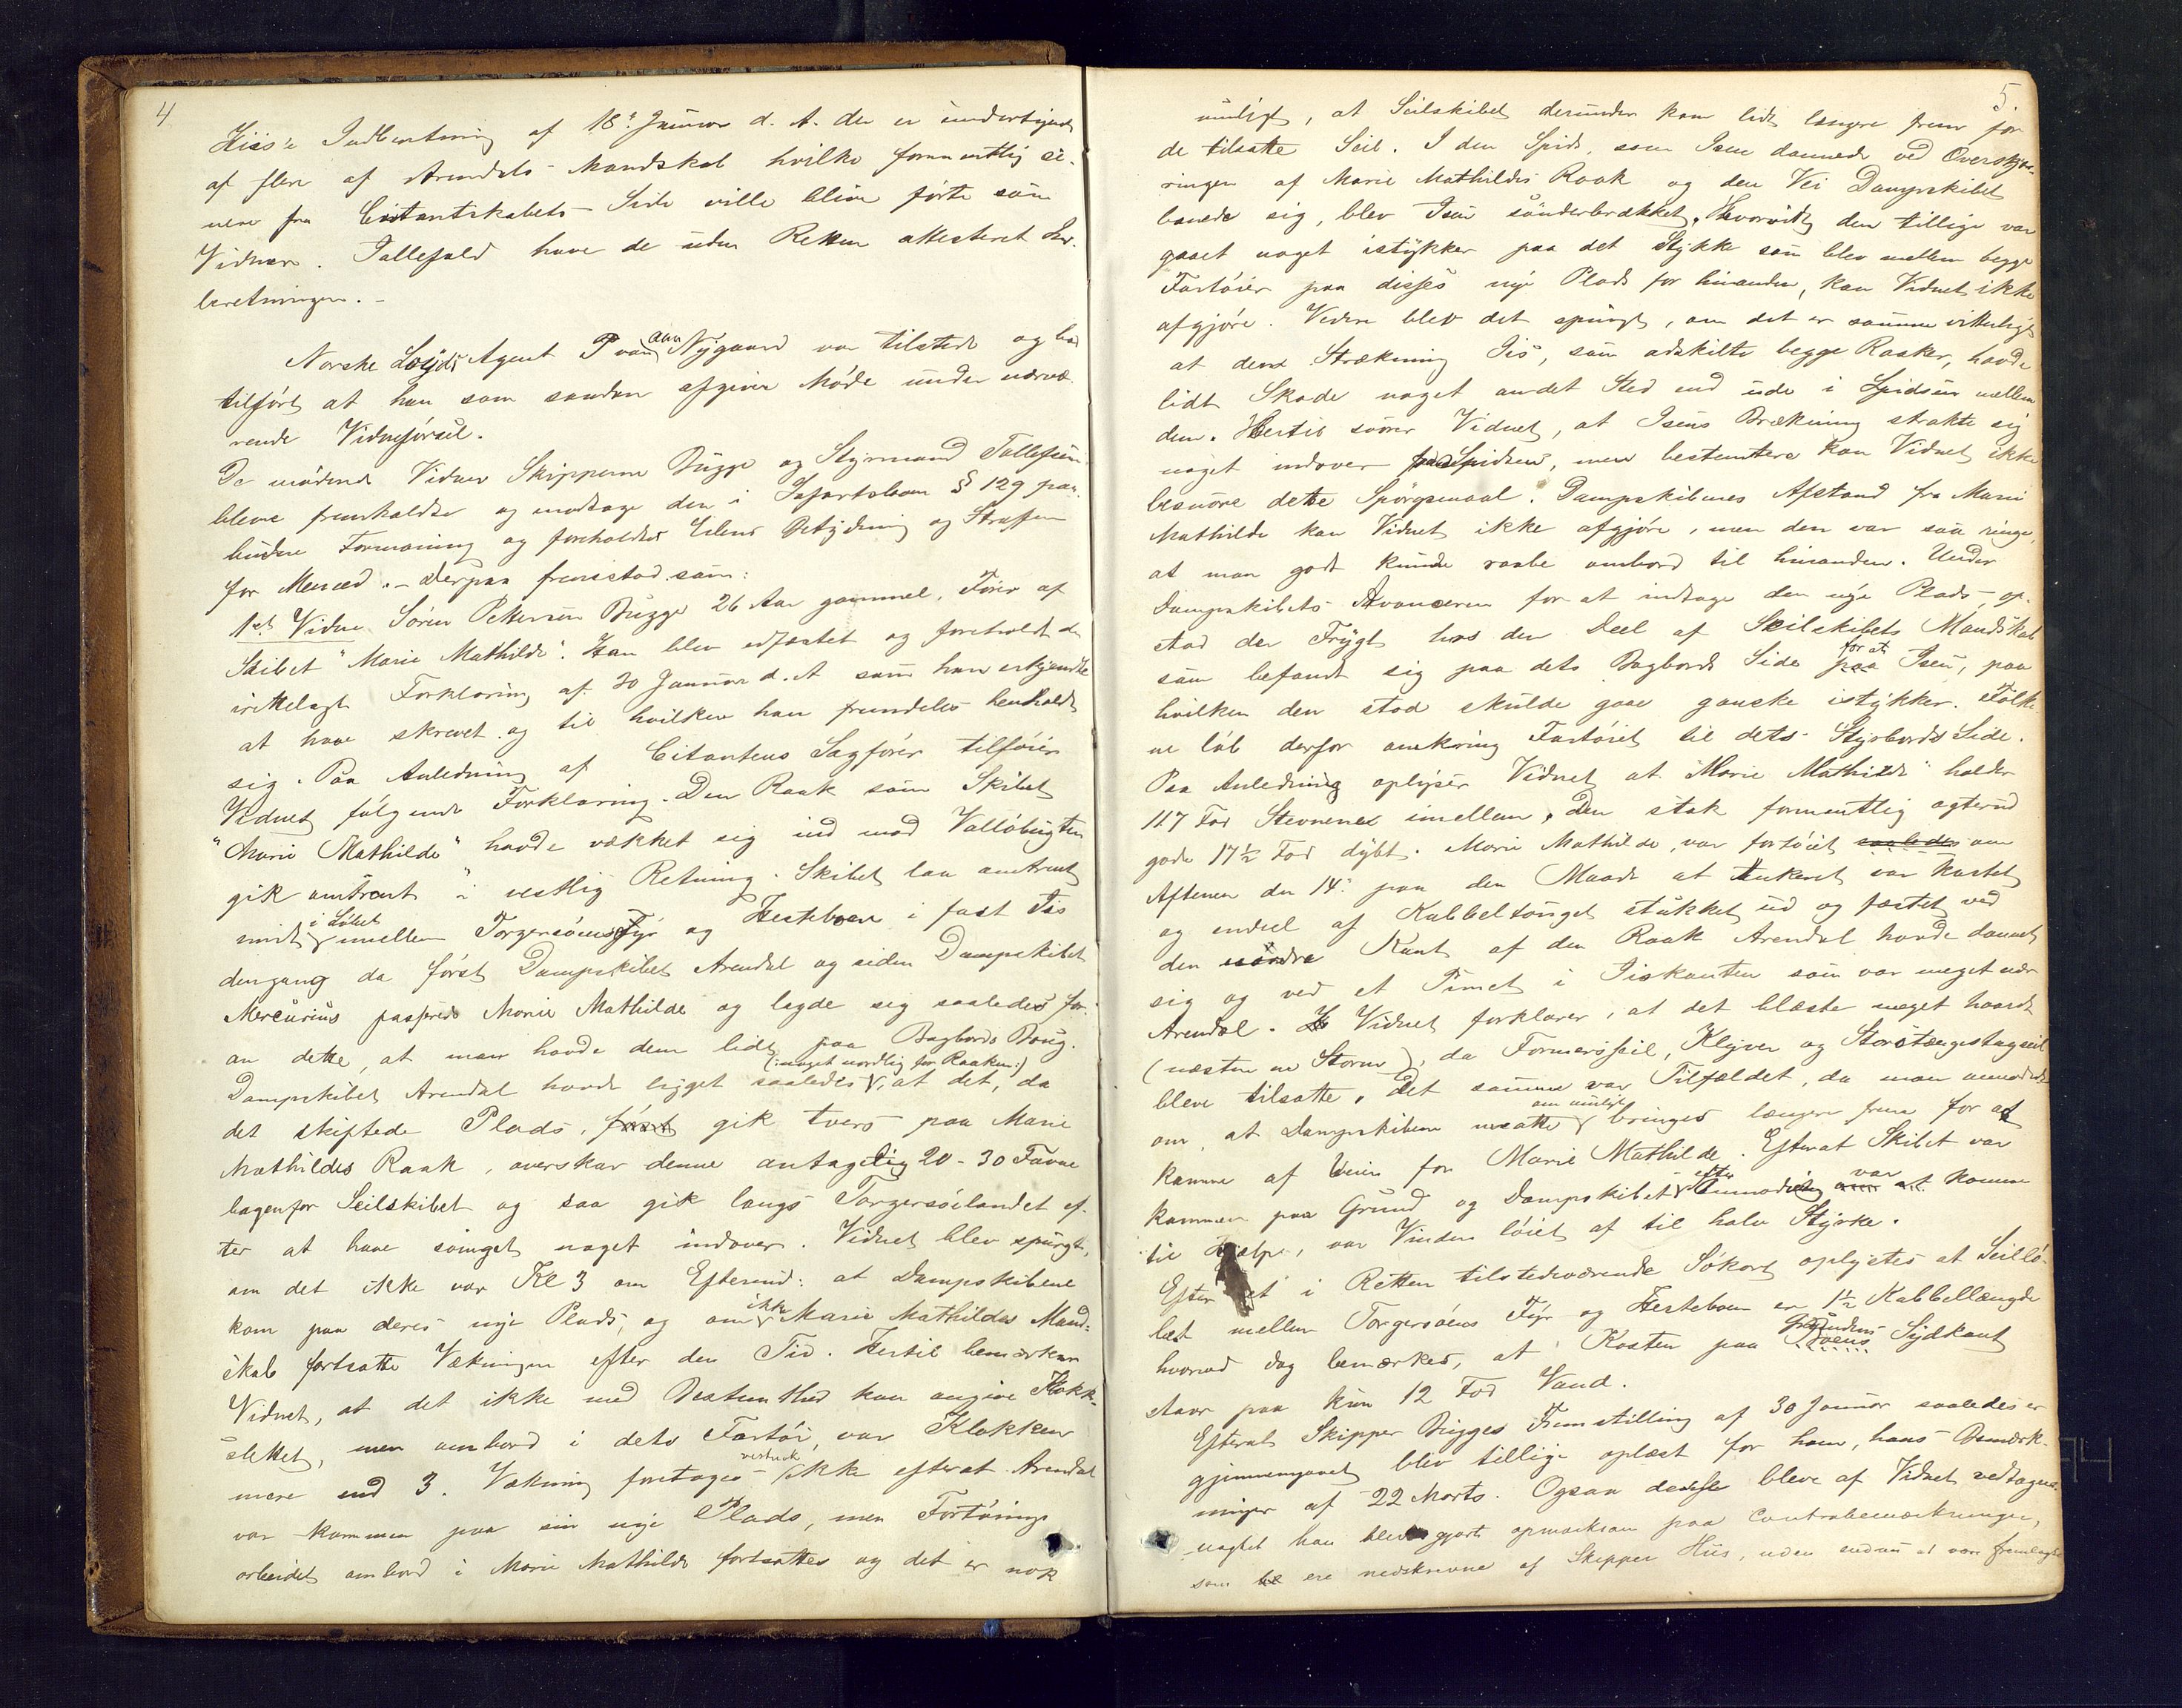 4
Hiis's Indberetning af 18de Januar d. A. der er undertegnet
af flere af Arendals Mandskab hvilke formentlig se-
nere fra Citantskabets Side ville blive førte som
Vidner. I alfald have de uden Retten attesteret Ind-
beretningen. -
Norske Lloyds Agent P van Nygaard var tilstede og bad
tilført at han som saadan afgiver Møde under nærvæ-
rende Vidneførsel.
De mødende Vidner Skipperne Bugge og Styrmand Tallefsen
bleve fremkaldte og modtage den i Søfartsloven § 129 paa-
budne Formaning og foreholdtes Edens Betydning og Straffen
for Meneed. - Derpaa fremstod som:
1st Vidne Søren Pettersen Bugge 26 Aar gammel, Fører af
Skibet "Marie Mathilde". Han blev edfæstet og foreholdt den
irettelagte Forklaring af 30 Januar d. A som han erkjendte
at have skrevet og til hvilken han fremdeles henholdt
sig. Paa Anledning af Citantens Sagfører tilføier
Vidnet følgende Forklaring. Den Raak som Skibet
"Marie Mathilde" havde vækket sig ind mod Valløbugten
gik omtrent i vestlig Retning. Skibet laa omtrent
midt i Løbet imellem Torgersøens Fyr og Hesteboen i fast Is
dengang da først Dampskibet Arendal og siden Dampskibet
Mercurius passerede Marie Mathilde og lagde sig saaledes for-
an dette, at man havde dem lidt paa Bagbords Boug.
Dampskibet Arendal havde ligget saaledes (: noget nordlig for Raaken :), at det, da
det skiftede Plads, først gik tvers paa Marie
Mathildes Raak, overskar denne antagelig 20 - 30 Favne
bagenfor Seilskibet og saa gik langs Torgersøilandet ef-
ter at have svinget noget indover. Vidnet blev spurgt,
om det ikke var Kl 3 om Eftermd: at Dampskibene
kom paa deres nye Plads, og om ikke Marie Mathildes Mand-
skab fortsatte Vækningen efter den Tid. Hertil bemærker
Vidnet, at det ikke med Bestemthed kan angive Klokke-
slettet, men ombord i dets Fartøi var Klokken
mere end 3. Vækning foretoges vestuck ikke efterat Arendal
var kommen paa sin nye Plads, men Fortøinings
arbeidet ombord i Marie Mathilde fortsattes og det er nok
5.
muligt, at Seilskibet derunder kom lidt længere frem for
de tilsatte Seil. I den Spids, som Isen dannede ved Overskjæ-
ringen af Marie Mathildes Raak og den Vei Dampskibet
banede sig, blev Isen sönderbrækket. Hvorvidt den tillige var
gaaet noget istykker paa det Stykke som blev mellem begge
Fartøier paa disses nye Plads for hinanden, kan Vidnet ikke
afgjøre. Videre blev det spurgt, om det er samme vitterligt
at den Strækning Iis, som adskilte begge Raaker, havde
lidt Skade noget andet Sted end ude i Spidsen mellem
dem. Hertil svarer Vidnet, at Isens Brækning strakte sig
noget indover fra Spidsen, men bestemtere kan Vidnet ikke
besvare dette Spørgsmaal. Dampskibenes Afstand fra Marie
Mathilde kan Vidnet ikke afgjøre, men den var saa ringe,
at man godt kunde raabe ombord til hinanden. Under
Dampskibets Avanceren for at indtage den nye Plads op-
stod der Frygt hos den Deel af Seilskibets Mandskab
som befandt sig paa dets Bagbords Side for at paa Isen, paa
hvilken den stod skulde gaae ganske istykker. Folke-
ne løb derfor omkring Fartøiet til dets Styrbords Side.
Paa Anledning oplyser Vidnet at "Marie Mathilde" holder
117 Fod Stevnene imellem. Den stak formentlig agterud
gode 17½ Fod dybt. Marie Mathilde, var fortøiet saaledes om
Aftenen den 14de paa den Maade at Ankeret var kastet
og endeel af Kabbeltouget stukket ud og fæstet ved
den nordre Kant af den Raak Arendal havde dannet
sig og ved et Timet i Iiskanten som var meget nær
Arendal. Vidnet forklarer, at det blæste meget haardt
(næsten en Storm), da Formersseil, Klyver og Storstængestagseil
bleve tilsatte. Det samme var Tilfældet, da man anmodede
om, at Dampskibene maatte om muligt bringes længere frem for at
komme af Veien for Marie Mathilde. Efterat Skibet var
kommen paa Grund og Dampskibet efter Anmodning om at var komme
til Hjælp, var Vinden løiet af til halv Styrke.
Efter et i Retten tilstedeværende Søkort oplystes at Seillø-
bet mellem Torgersøens Fyr og Hesteboen er 1½ Kabbellængde
hvorved dog bemærkes, at Kosten paa Grundens Boens Sydkant
staar paa kun 12 Fod Vand.
Efterat Skipper Bugges Fremstilling af 30 Januar saaledes er
gjennemgaaet blev tillige oplæst for ham, hans Bemærk-
ninger af 22 Marts. Ogsaa disse bleve af Vidnet vedtagne
uagtet han blev gjort opmærksom paa Contrabemærkninger,
som ere nedskrevne af Skipper Hiis, uden endnu at være fremlagte